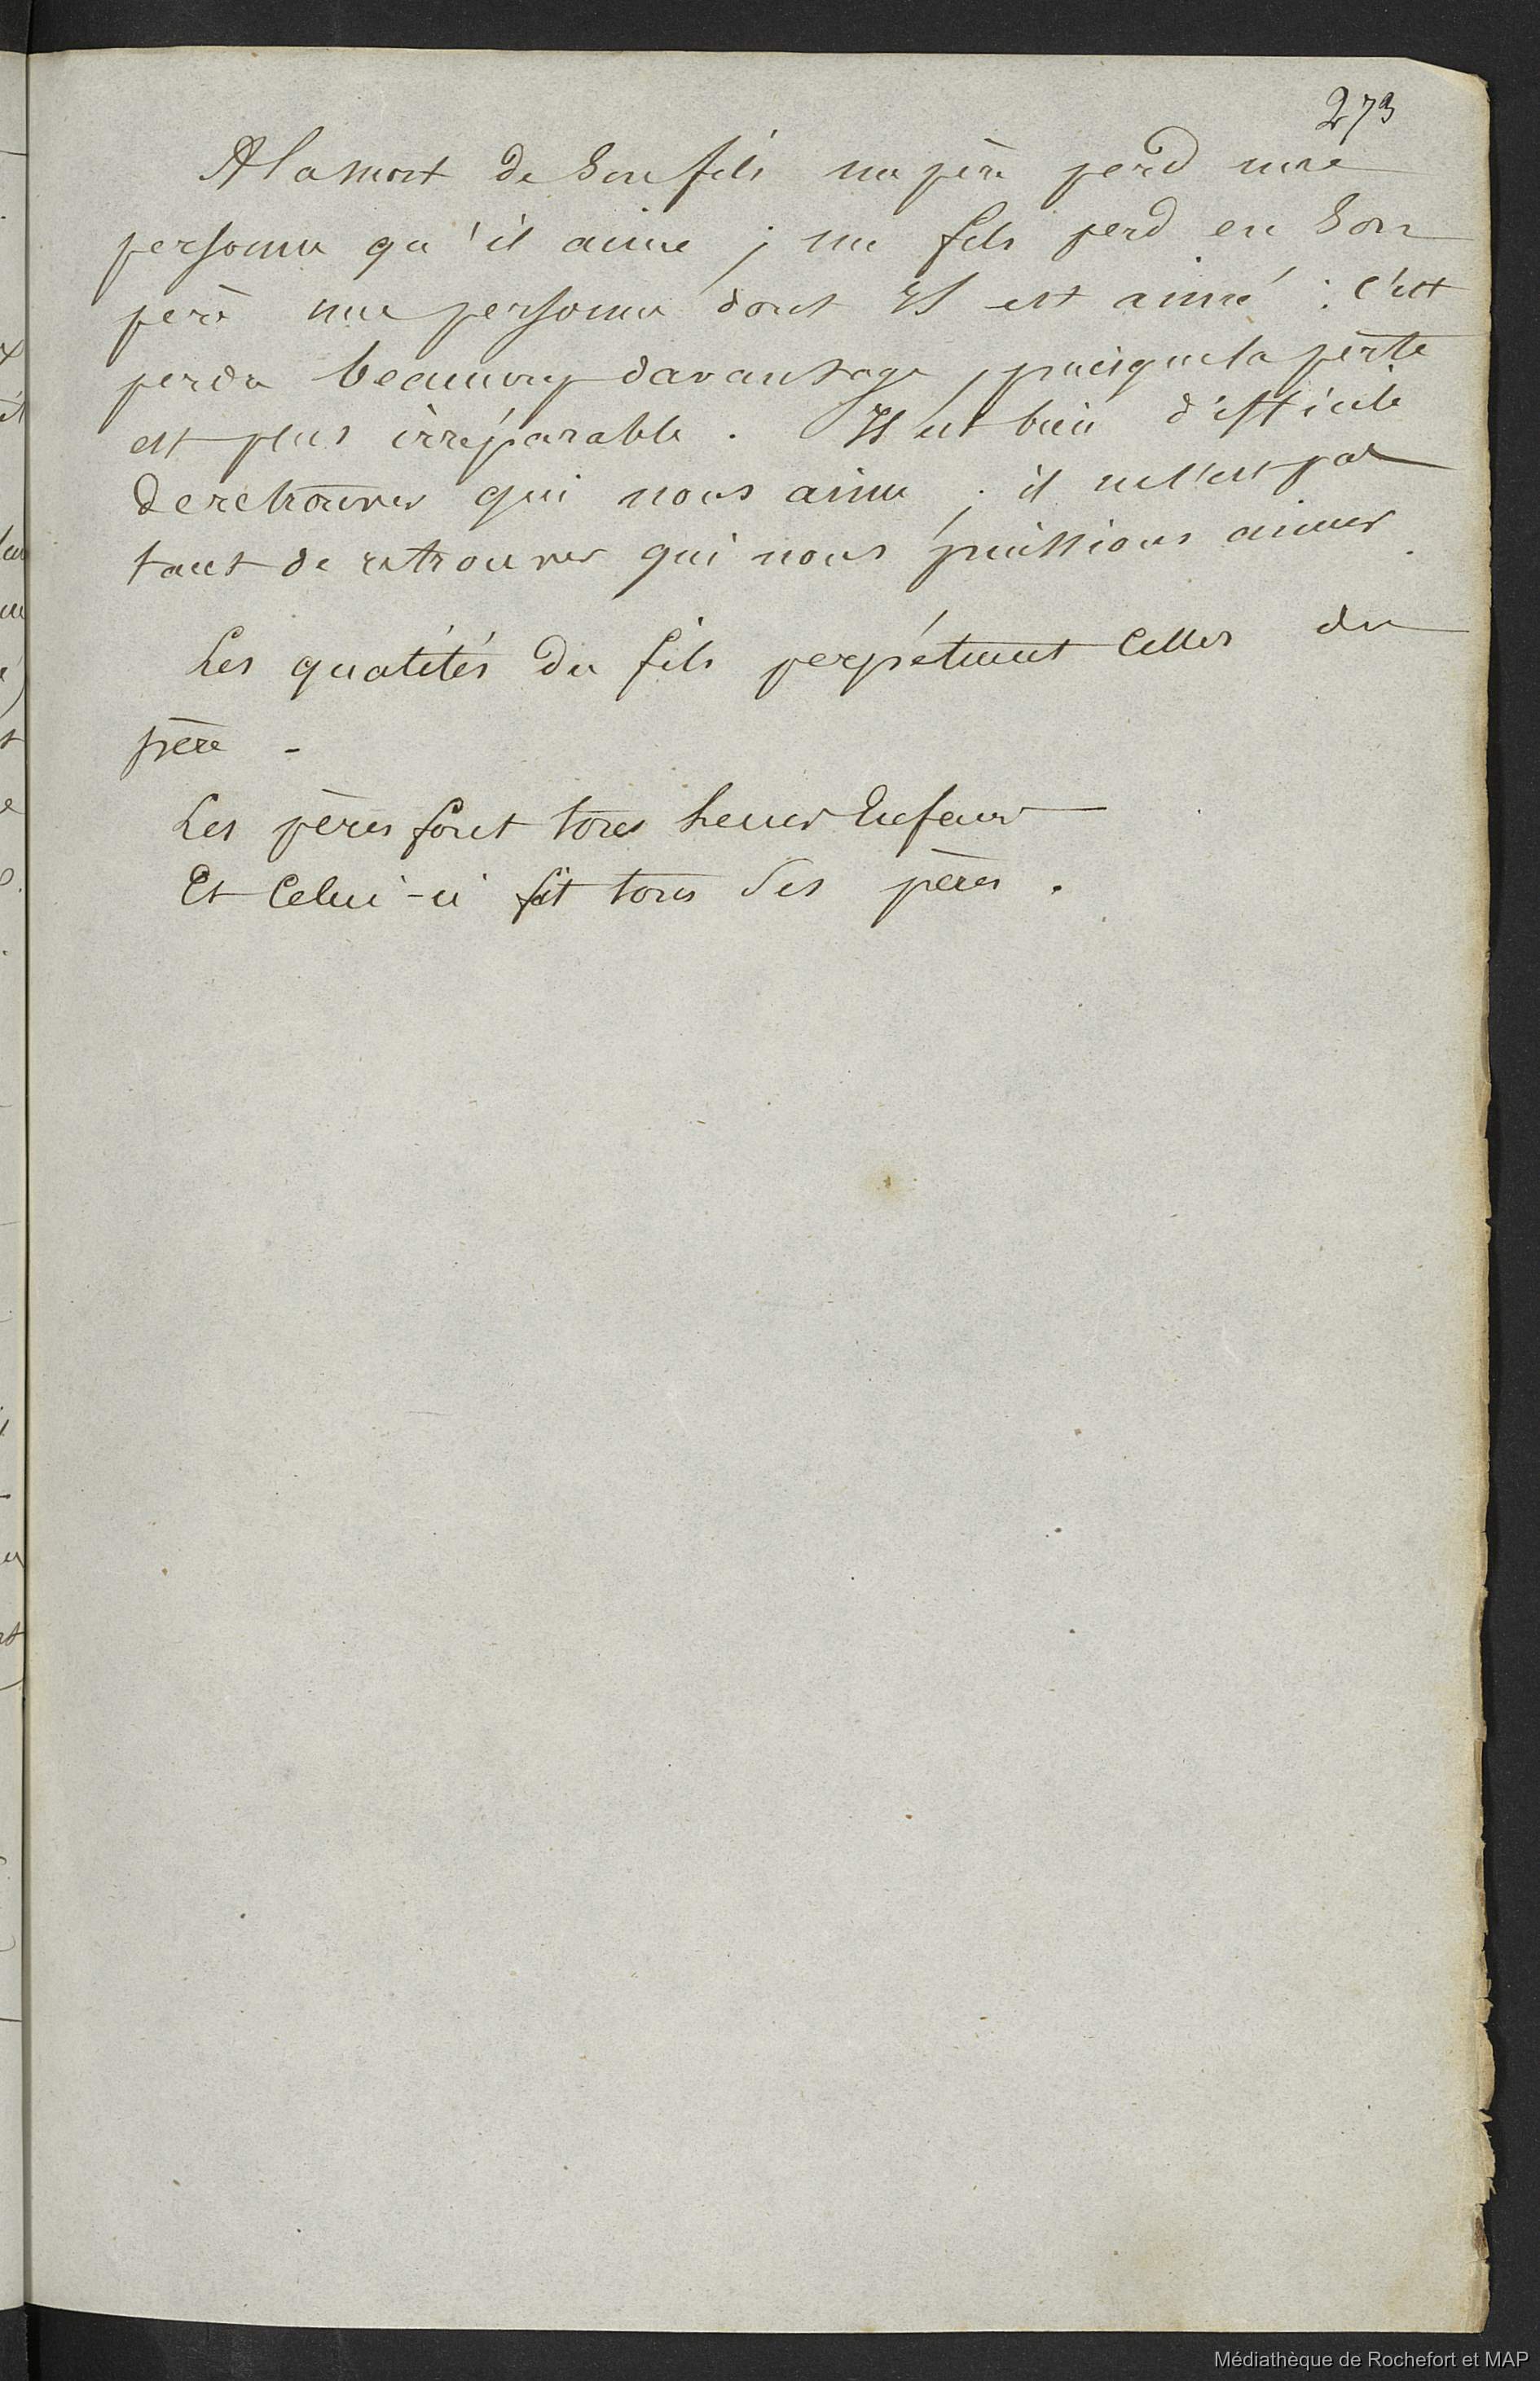 273
A la mort de son fils un père perd une
personne qu'il aime ; un fils perd en son
père une personne dont Il est aimé : c'est
perdre beaucoup davantage, puisque la perte
est plus irréparable. Il est bien difficile
de retrouver qui nous aime ; il ne l'est pas
tant de retrouver qui nous puissions aimer.
Les qualités du fils perpétuent celles du
père -
Les pères font tous leurs Enfans
Et Celui-ci fit tous ses pères.
Médiathèque de Rochefort et MAP